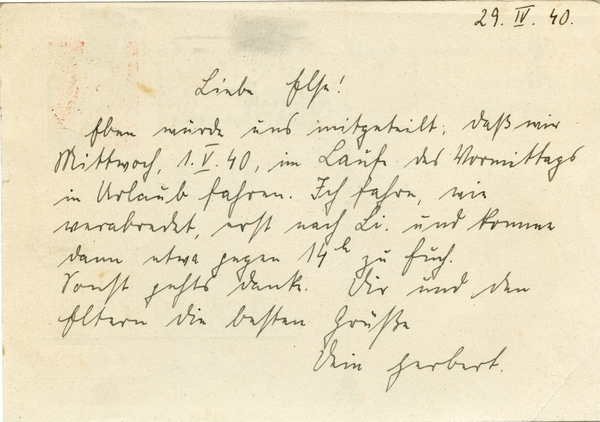 29. IV. 40.
Liebe Else!
Eben wurde uns mitgeteilt, daß wir
Mittwoch, 1. V. 40, im Laufe des Vormittags
in Urlaub fahren. Ich fahre, wie
verabredet, erst nach Li. und komme
dann etwa gegen 14h zu Euch.
Sonst gehts danke. Dir und den
Eltern die besten Grüße
Dein Herbert.